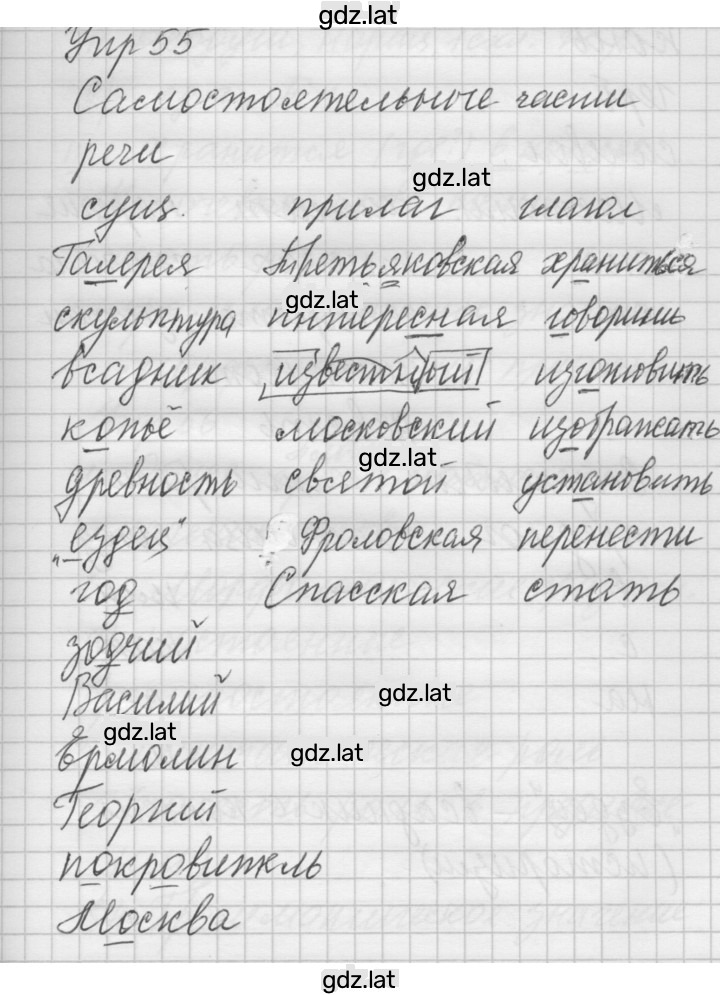 gdz.lat
Упр 55
Самостоятельные части
речи
gdz.lat
сущ. прилаг глагол
Галерея Третьяковская храниться
gdz.lat
скульптура интересная говоришь
всадник известный изготовить
копьё московский изображать
gdz.lat
древность святой установить
"ездец" Фроловская перенести
год Спасская стать
зодчий
Василий gdz.lat
gdz.lat
Ермолин gdz.lat
Георгий
покровитель
Москва
gdz.lat